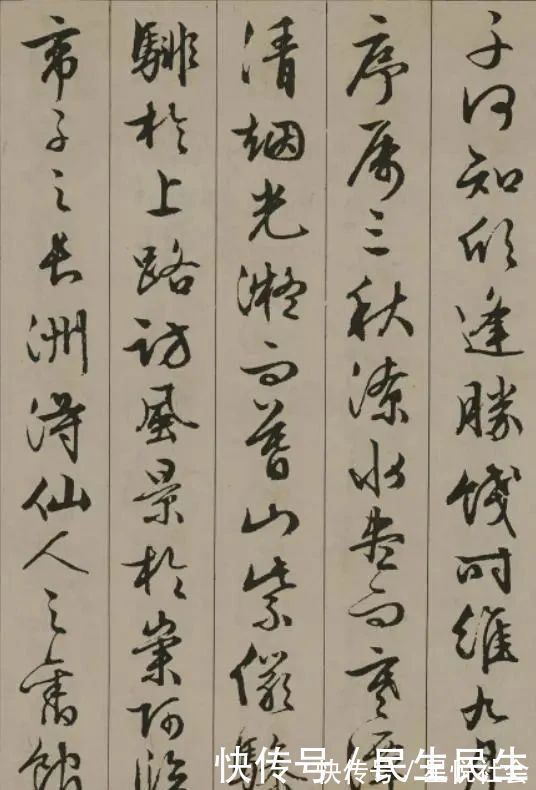 子何知欣逢勝餞时維九月
序属三秋潦水尽而寒潭
清烟光凝而暮山紫儼驂
騑於上路訪風景於崇阿臨
帝子之長洲得仙人之舊館
快传号 / 民生民生
快传号 /